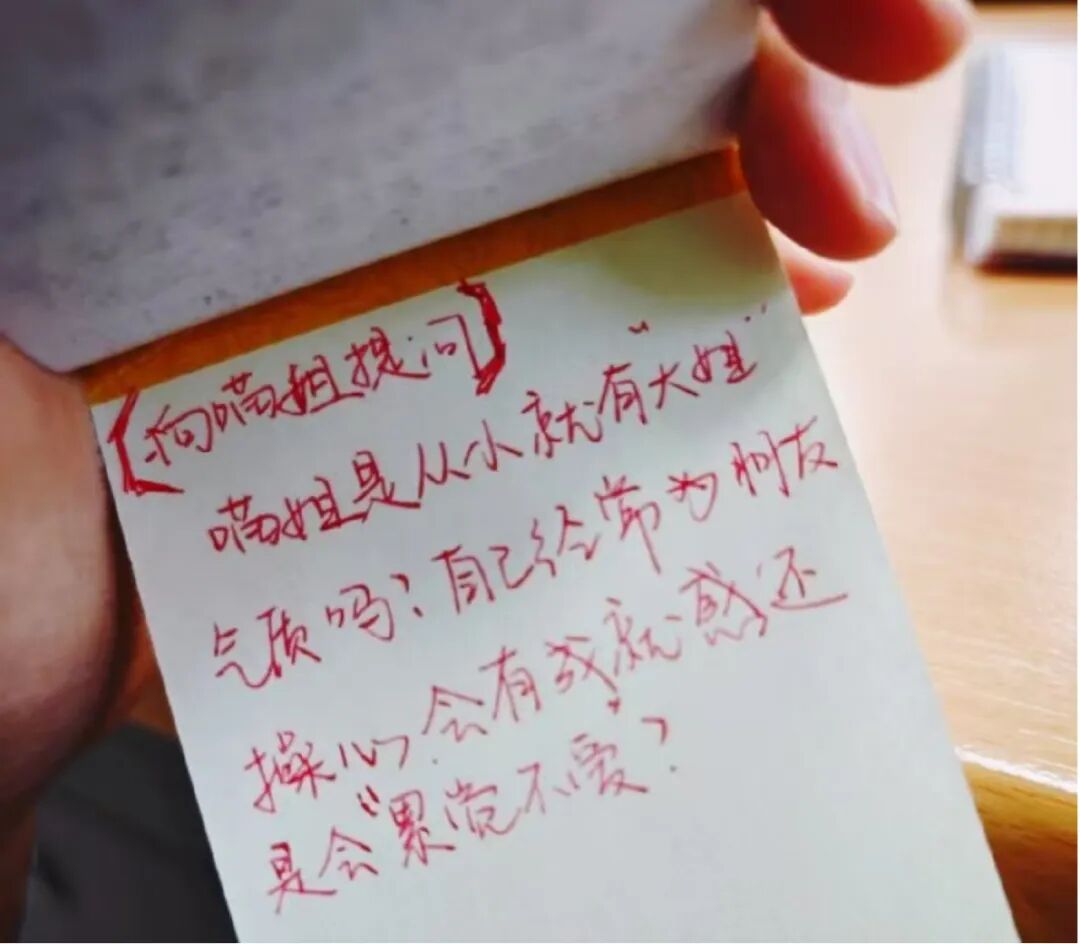 【向喵姐提问】
喵姐是从小就有“大姐”
气质吗？自己经常为朋友
操心，会有成就感还
是会“累觉不爱”？